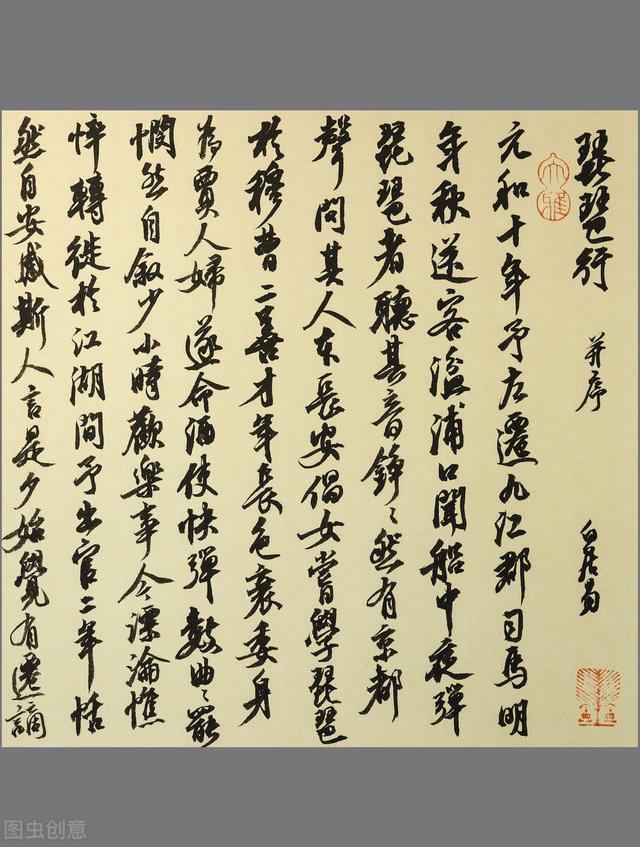 琵琶行 并序 白居易
大雅
元和十年予左遷九江郡司馬明
年秋送客湓浦口聞船中夜彈
琵琶者聽其音錚〻然有京都
聲問其人本長安倡女嘗學琵琶
於穆曹二善才年長色衰委身
為賈人婦遂命酒使快彈數曲〻罷
憫然自敘少小時歡樂事今漂淪憔
悴轉徙於江湖間予出官二年恬
然自安感斯人言是夕始覺有遷謫
图虫创意